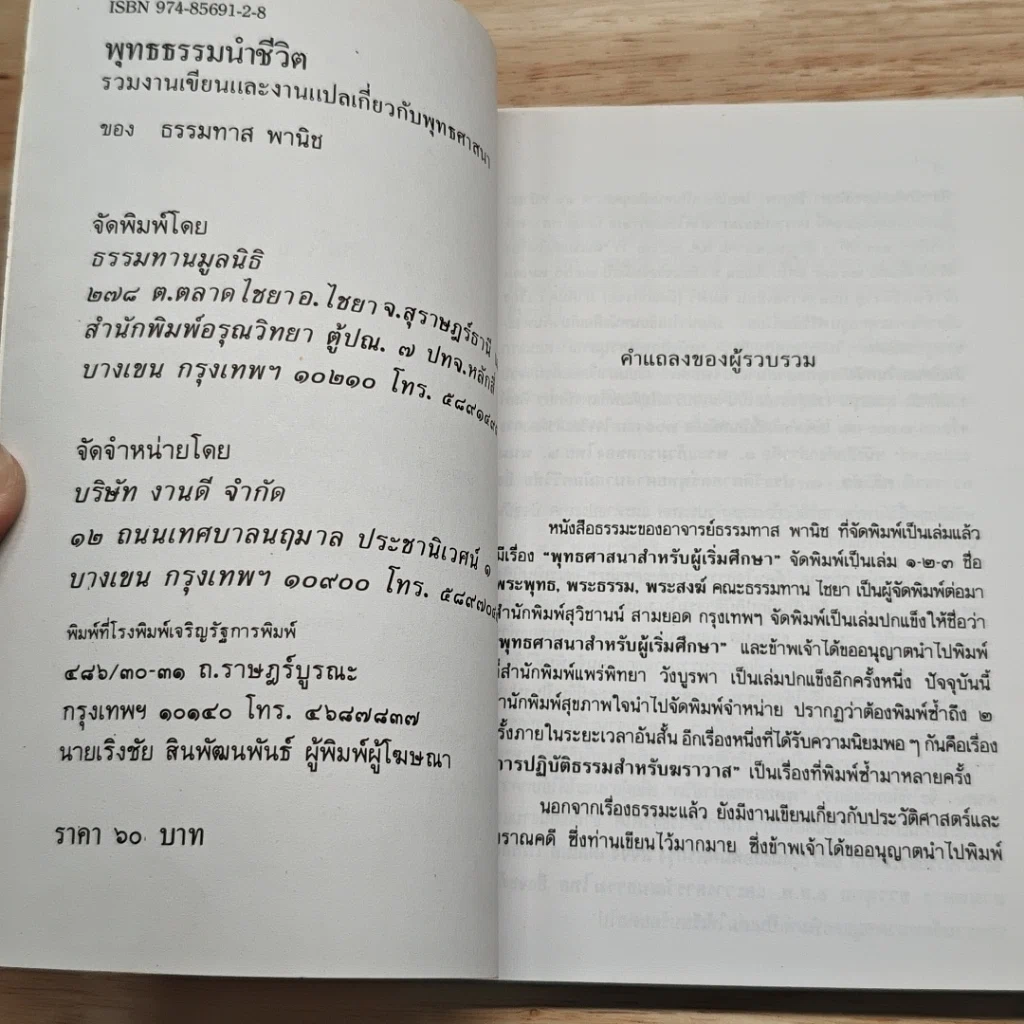 ISBN 974-85691-2-8
พุทธธรรมนำชีวิต
รวมงานเขียนและงานแปลเกี่ยวกับพุทธศาสนา
ของ ธรรมทาส พานิช
จัดพิมพ์โดย
ธรรมทานมูลนิธิ
๒๗๘ ต.ตลาดไชยา อ.ไชยา จ.สุราษฎร์ธานี
สำนักพิมพ์อรุณวิทยา ตู้ปณ. ๗ ปทจ.หลักสี่
บางเขน กรุงเทพฯ ๑๐๒๑๐ โทร.
จัดจำหน่ายโดย
บริษัท งานดี จำกัด
๑๒ ถนนเทศบาลนฤมาล ประชานิเวศน์ ๑
บางเขน กรุงเทพฯ ๑๐๙๐๐ โทร.
พิมพ์ที่โรงพิมพ์เจริญรัฐการพิมพ์
๔๘๖/๓๐-๓๑ ถ.ราษฎร์บูรณะ
กรุงเทพฯ ๑๐๑๔๐ โทร. ๔๖๘๗๘๓๗
นายเริงชัย สินพัฒนพันธ์ ผู้พิมพ์ผู้โฆษณา
ราคา ๖๐ บาท
คำแถลงของผู้รวบรวม
หนังสือธรรมะของอาจารย์ธรรมทาส พานิช ที่จัดพิมพ์เป็นเล่มแล้ว
มีเรื่อง "พุทธศาสนาสำหรับผู้เริ่มศึกษา" จัดพิมพ์เป็นเล่ม ๑-๒-๓ ชื่อ
พระพุทธ, พระธรรม, พระสงฆ์ คณะธรรมทาน ไชยา เป็นผู้จัดพิมพ์ต่อมา
สำนักพิมพ์สุวิชานน์ สามยอด กรุงเทพฯ จัดพิมพ์เป็นเล่มปกแข็งให้ชื่อว่า
พุทธศาสนาสำหรับผู้เริ่มศึกษา" และข้าพเจ้าได้ขออนุญาตนำไปพิมพ์
ที่สำนักพิมพ์แพร่พิทยา วังบูรพา เป็นเล่มปกแข็งอีกครั้งหนึ่ง ปัจจุบันนี้
สำนักพิมพ์สุขภาพใจนำไปจัดพิมพ์จำหน่าย ปรากฏว่าต้องพิมพ์ซ้ำถึง ๒
ครั้งภายในระยะเวลาอันสั้น อีกเรื่องหนึ่งที่ได้รับความนิยมพอ ๆ กันคือเรื่อง
การปฏิบัติธรรมสำหรับฆราวาส" เป็นเรื่องที่พิมพ์ซ้ำมาหลายครั้ง
นอกจากเรื่องธรรมะแล้ว ยังมีงานเขียนเกี่ยวกับประวัติศาสตร์และ
โบราณคดี ซึ่งท่านเขียนไว้มากมาย ซึ่งข้าพเจ้าได้ขออนุญาตนำไปพิมพ์